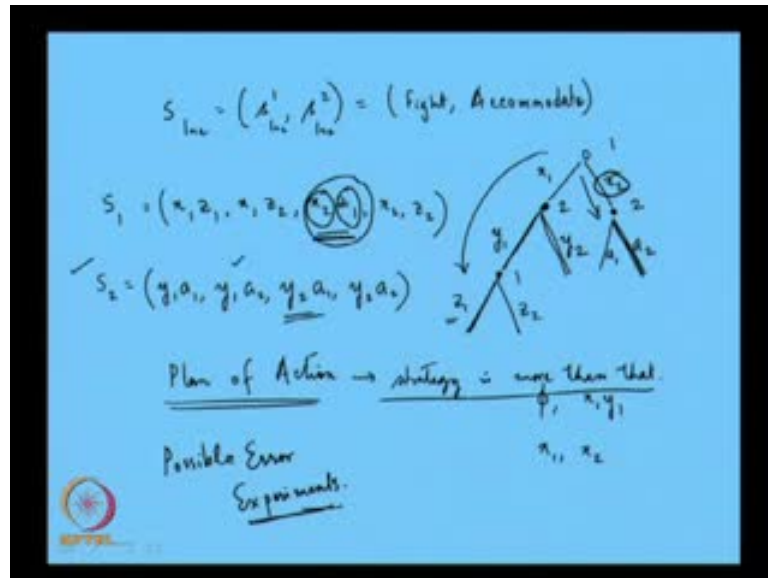 S_Inc = (s^1_Inc, s^2_Inc) = (Fight, Accommodate)
1
x_1 x_2
S_1 = (x_1 z_1, x_1 z_2, x_2 z_1, x_2, z_2)
2 2
y_1 y_2 a_1 a_2
1
S_2 = (y_1 a_1, y_1 a_2, y_2 a_1, y_2 a_2)
z_1 z_2
Plan of Action → strategy is more than that.
ϕ, x_1 y_1
Possible Error
x_1, x_2
Experiments.
NPTEL